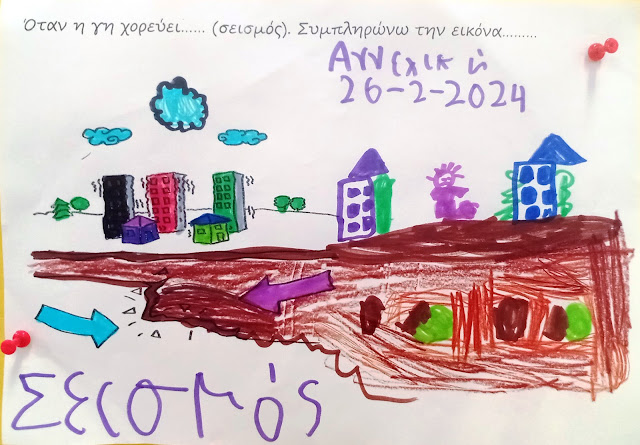 Όταν η γη χορεύει...... (σεισμός). Συμπληρώνω την εικόνα.........
Αγγελικ ή
26-2-2024
Σεισμός